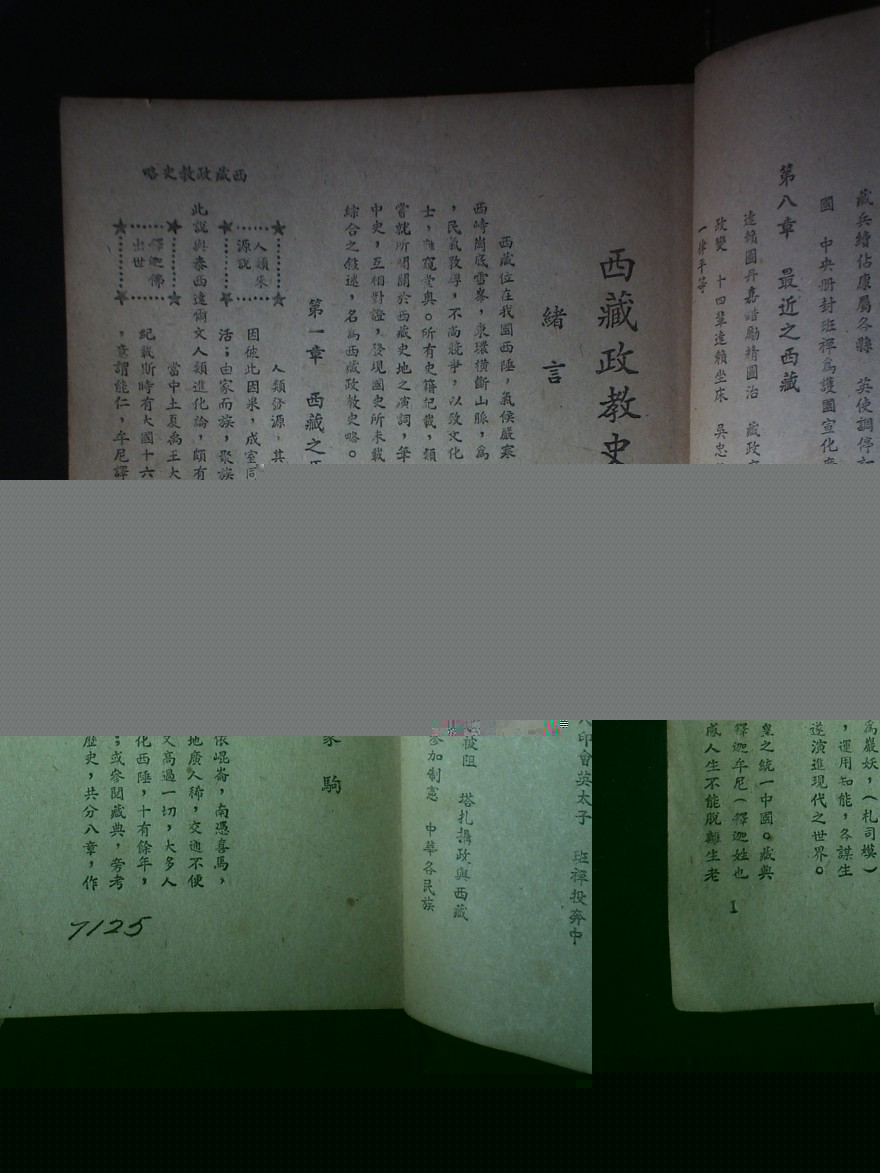 第八章 最近之西藏
達賴圖丹嘉錯勵精圖治 藏政府
政變 十四輩達賴坐床 吳忠
一律平等
藏兵續佔康屬各縣 英使調停
國 中央册封班禪為護國宣化
西藏政教史
緒言
西藏位在我國西陲，氣侯嚴寒
西峙崗底雪峯，東環橫斷山脈，為
，民氣敦厚，不尚競爭，以致文化
士，難窺堂奧。所有史籍記載，類
嘗就所聞關於西藏史地之演詞，筆
中史，互相對證，發現國史所未載
綜合之敍述，名為西藏政教史略。
第一章 西藏之
人類來
源說
人類份源，其
因彼此因果，成室同
活；由家而族，聚族
此說與泰西達爾文人類進化論，頗有
釋迦佛
出世
當中土夏禹王大
紀載斯時有大國十六
，意謂能仁，牟尼譯
西藏政教史略
為巖妖，（札司模）
，運用知能，各謀生
遂演進現代之世界。
皇之統一中國。藏典
釋迦牟尼（釋迦姓也
感人生不能脫離生老
1
印會英太子 班禪投奔中
被阻 塔扎攝政與西藏
參加制憲 中華各民族
家駒
依崐崙，南憑喜馬，
地廣人稀，交通不便
文高過一切，大多人
化西陲，十有餘年，
；或參閱藏典，旁考
歷史，共分八章，作
7125